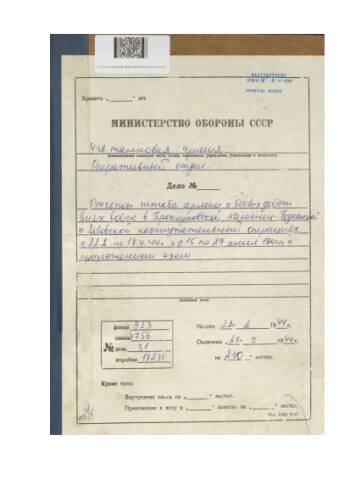 РАССЕКРЕЧЕНО
Хранить „ “ лет
МИНИСТЕРСТВО ОБОРОНЫ СССР
4 гв. танковая армия
Оперативный отдел
Дело №
Отчеты штаба армии о боевых действиях
войск в Проскуровско
и Львовской наступательной операциях
с 22.2 по 18.4.44г. и с 15 по 29 июля 1944г. с
приложением схем
фонда 323
описи 4756
№ дела 31
коробки 17236
Начато 1944г.
Окончено 1944г.
на 240 листах.
Кроме того:
Внутренняя опись на „ “ листах.
Приложение к делу в пакетах на „ “ листах.